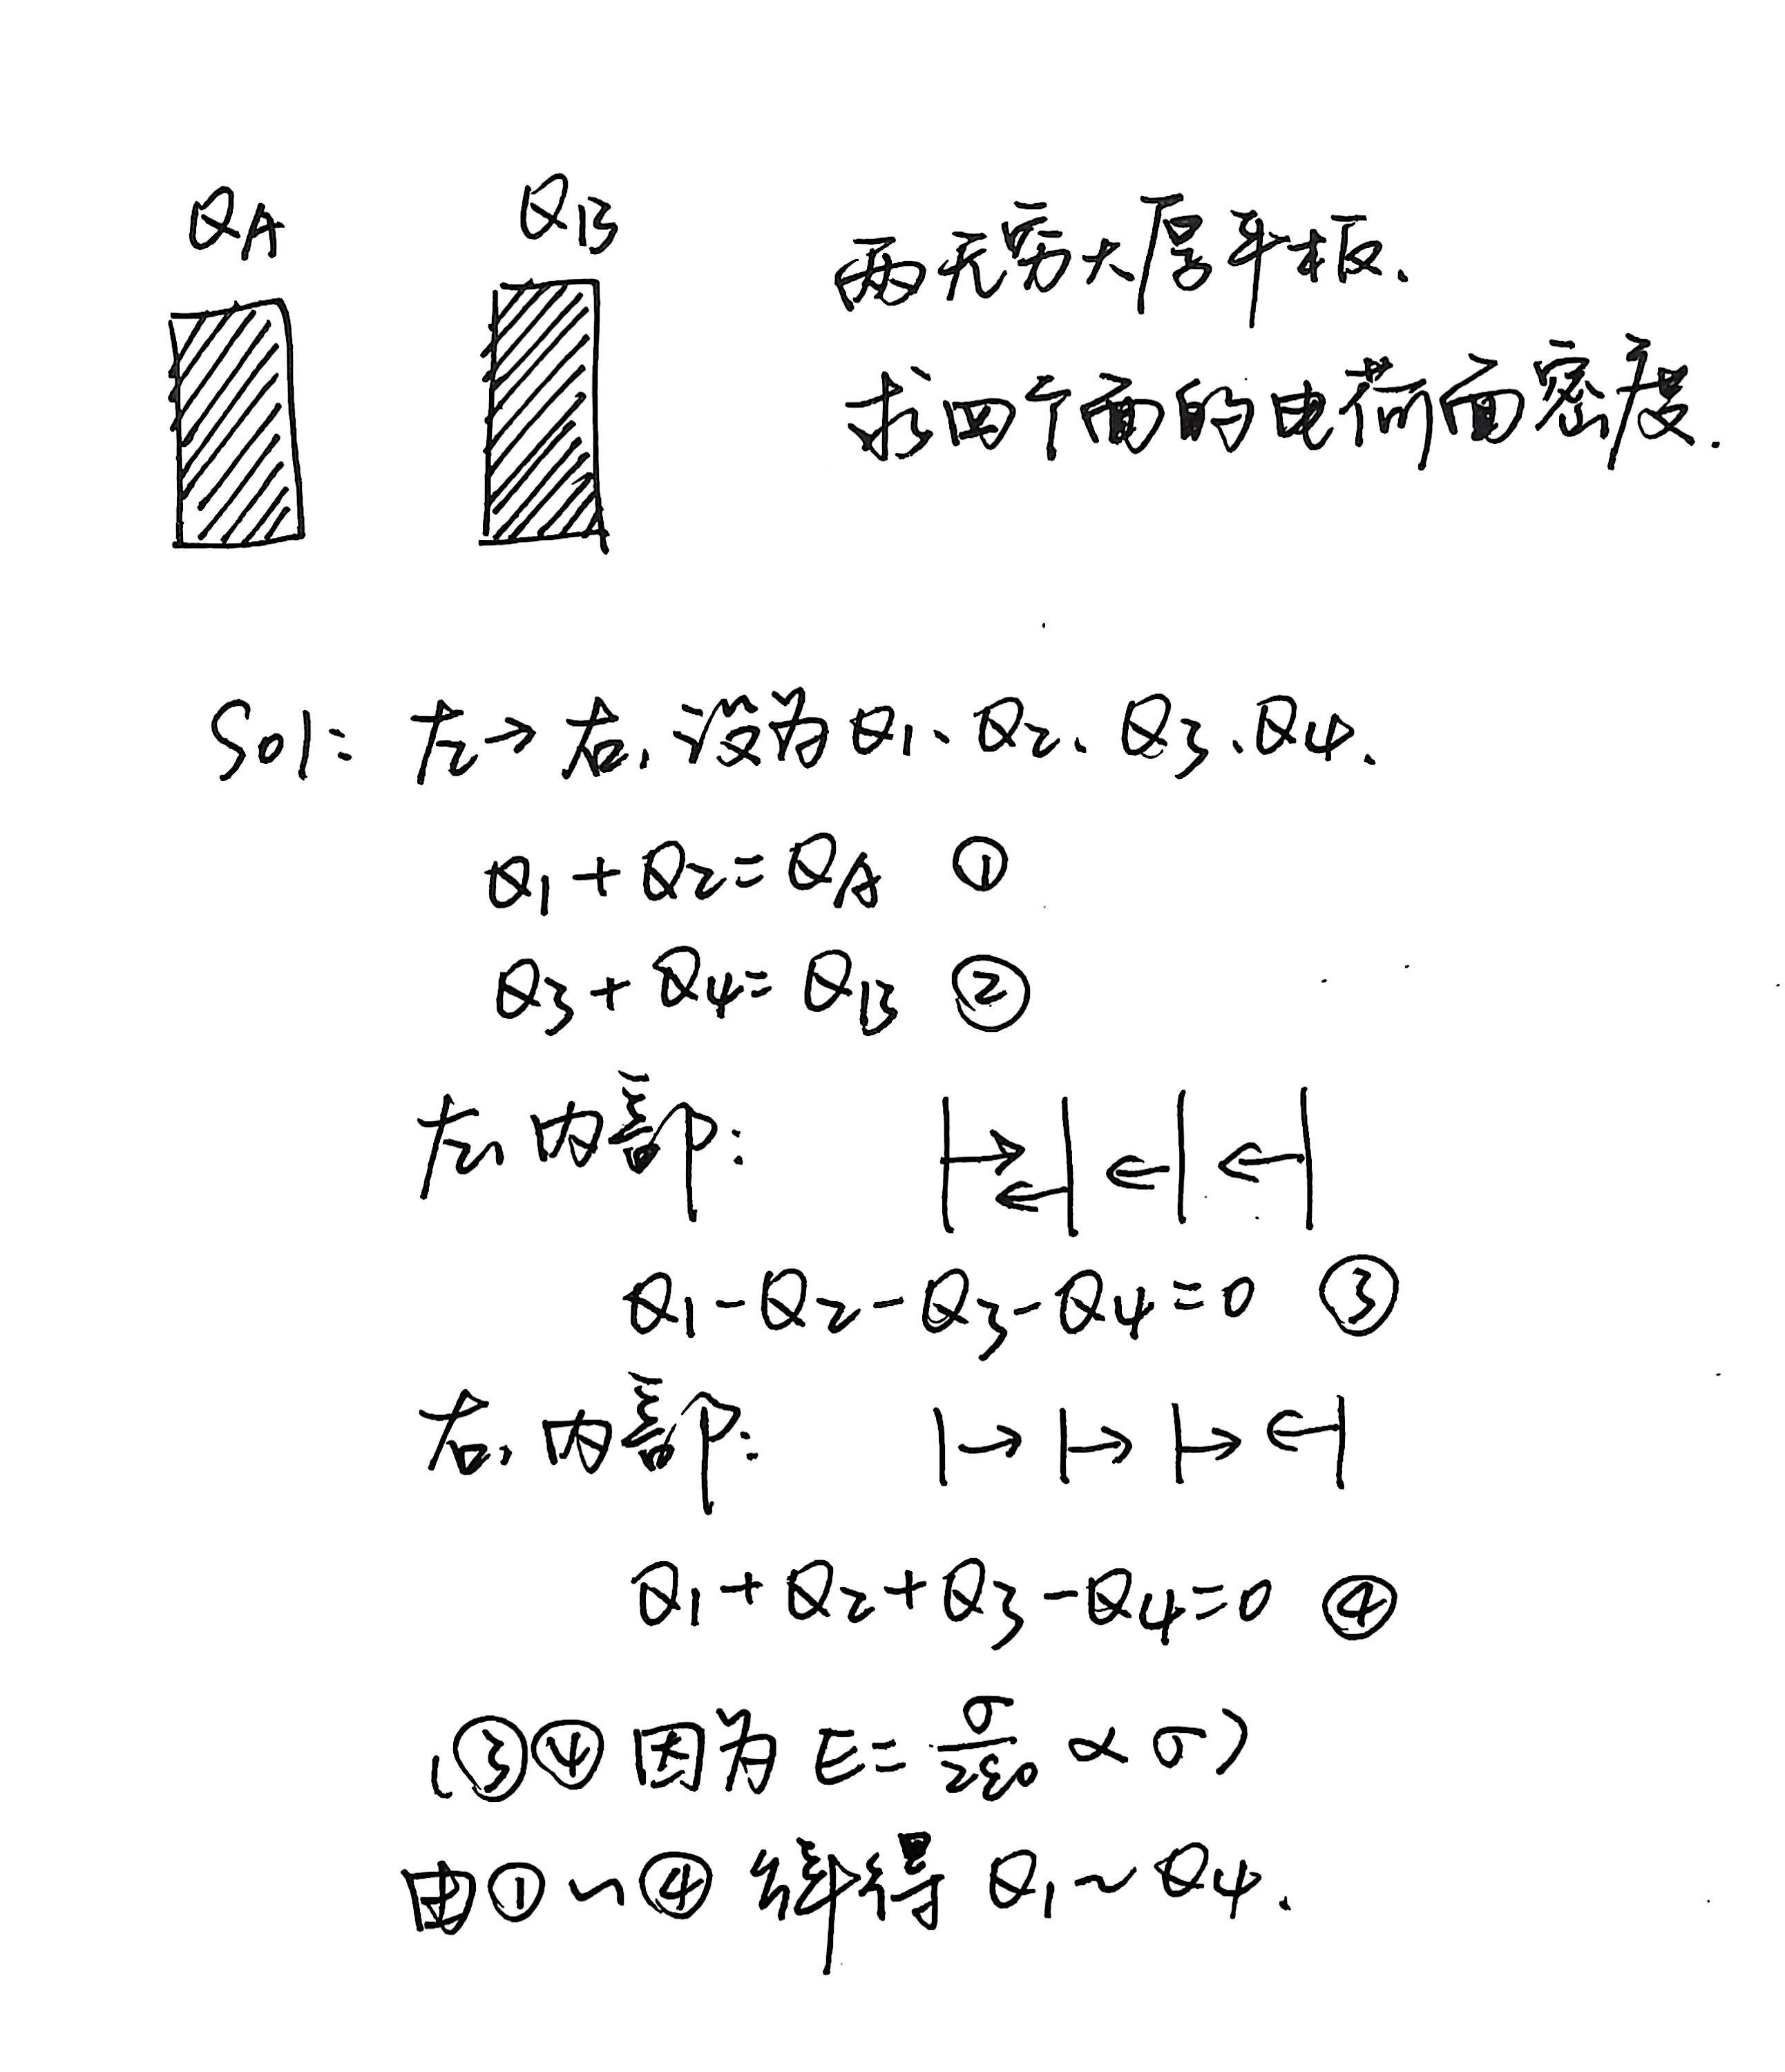 QA QB
两无穷大厚平板.
求四个面的电荷面密度.
Sol: 左→右, 设为Q1、Q2、Q3、Q4.
Q1+Q2=QA ①
Q3+Q4=QB ②
左内部:
Q1-Q2-Q3-Q4=0 ③
右内部:
Q1+Q2+Q3-Q4=0 ④
(③④因为 E=σ/2ε0 ∝ σ)
由①~④解得 Q1~Q4.